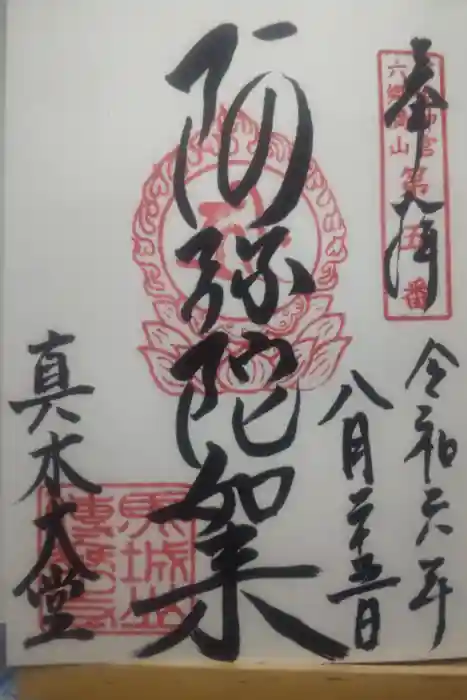 奉拝
六郷満山
第五番
令和六年
八月二十五日
阿弥陀如来
真木大堂